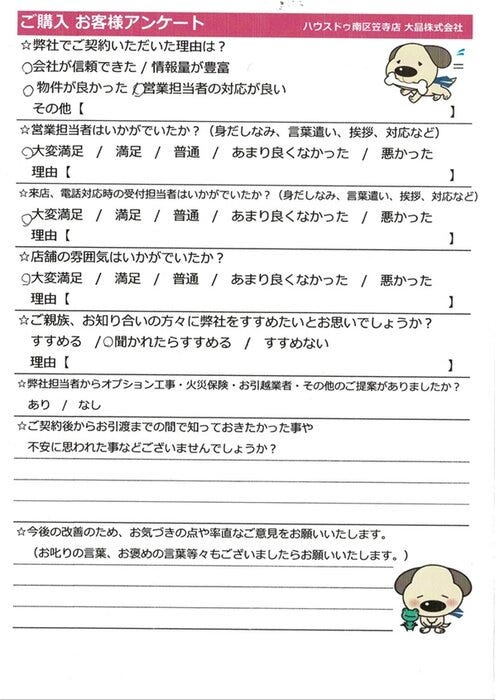 ご購入 お客様アンケート ハウスドゥ南区笠寺店 大晶株式会社
☆弊社でご契約いただいた理由は？
○会社が信頼できた / 情報量が豊富
○物件が良かった /○営業担当者の対応が良い
その他【 】
☆営業担当者はいかがでいたか？（身だしなみ、言葉遣い、挨拶、対応など）
○大変満足 / 満足 / 普通 / あまり良くなかった / 悪かった
理由【 】
☆来店、電話対応時の受付担当者はいかがでいたか？（身だしなみ、言葉遣い、挨拶、対応など）
○大変満足 / 満足 / 普通 / あまり良くなかった / 悪かった
理由【 】
☆店舗の雰囲気はいかがでいたか？
○大変満足 / 満足 / 普通 / あまり良くなかった / 悪かった
理由【 】
☆ご親族、お知り合いの方々に弊社をすすめたいとお思いでしょうか？
すすめる /○聞かれたらすすめる / すすめない
理由【 】
☆弊社担当者からオプション工事・火災保険・お引越業者・その他のご提案がありましたか？
あり / なし
☆ご契約後からお引渡までの間で知っておきたかった事や
不安に思われた事などございませんでしょうか？
☆今後の改善のため、お気づきの点や率直なご意見をお願いいたします。
（お叱りの言葉、お褒めの言葉等々もございましたらお願いいたします。）